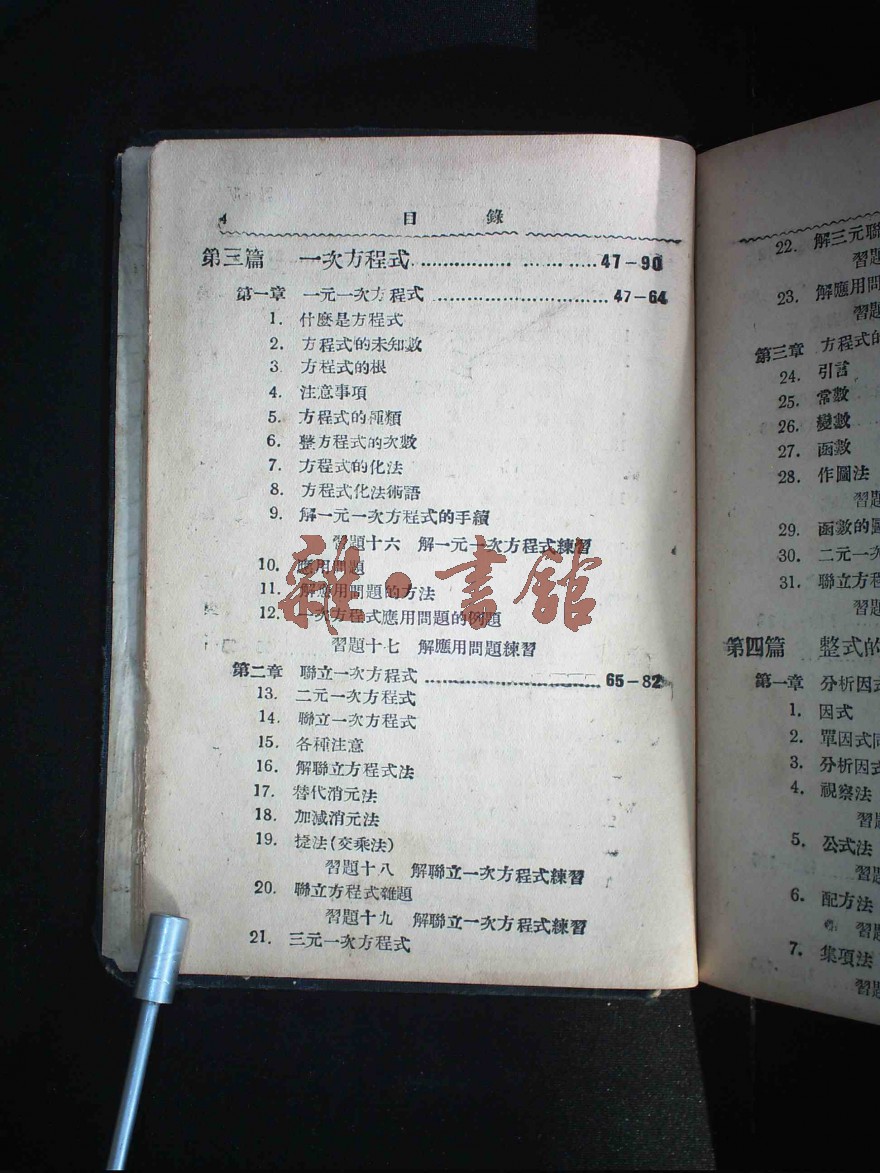 4 目錄
第三篇 一次方程式.................. ..........47-90
第一章 一元一次方程式 ........................47-64
1. 什麼是方程式
2. 方程式的未知數
3. 方程式的根
4. 注意事項
5. 方程式的種類
6. 整方程式的次數
7. 方程式的化法
8. 方程式化法術語
9. 解一元一次方程式的手續
習題十六 解一元一次方程式練習
10. 應用問題
11. 解應用問題的方法
12. 一次方程式應用問題的例題
習題十七 解應用問題練習
第二章 聯立一次方程式 ........................65-82
13. 二元一次方程式
14. 聯立一次方程式
15. 各種注意
16. 解聯立方程式法
17. 替代消元法
18. 加減消元法
19. 捷法(交乘法)
習題十八 解聯立一次方程式練習
20. 聯立方程式雜題
習題十九 解聯立一次方程式練習
21. 三元一次方程式
雜·書館
22. 解三元聯
習題
23. 解應用問
習題
第三章 方程式的
24. 引言
25. 常數
26. 變數
27. 函數
28. 作圖法
習題
29. 函數的圖
30. 二元一次
31. 聯立方程
習題
第四篇 整式的
第一章 分析因式
1. 因式
2. 單因式
3. 分析因式
4. 視察法
習題
5. 公式法
習題
6. 配方法
習題
7. 集項法
習題